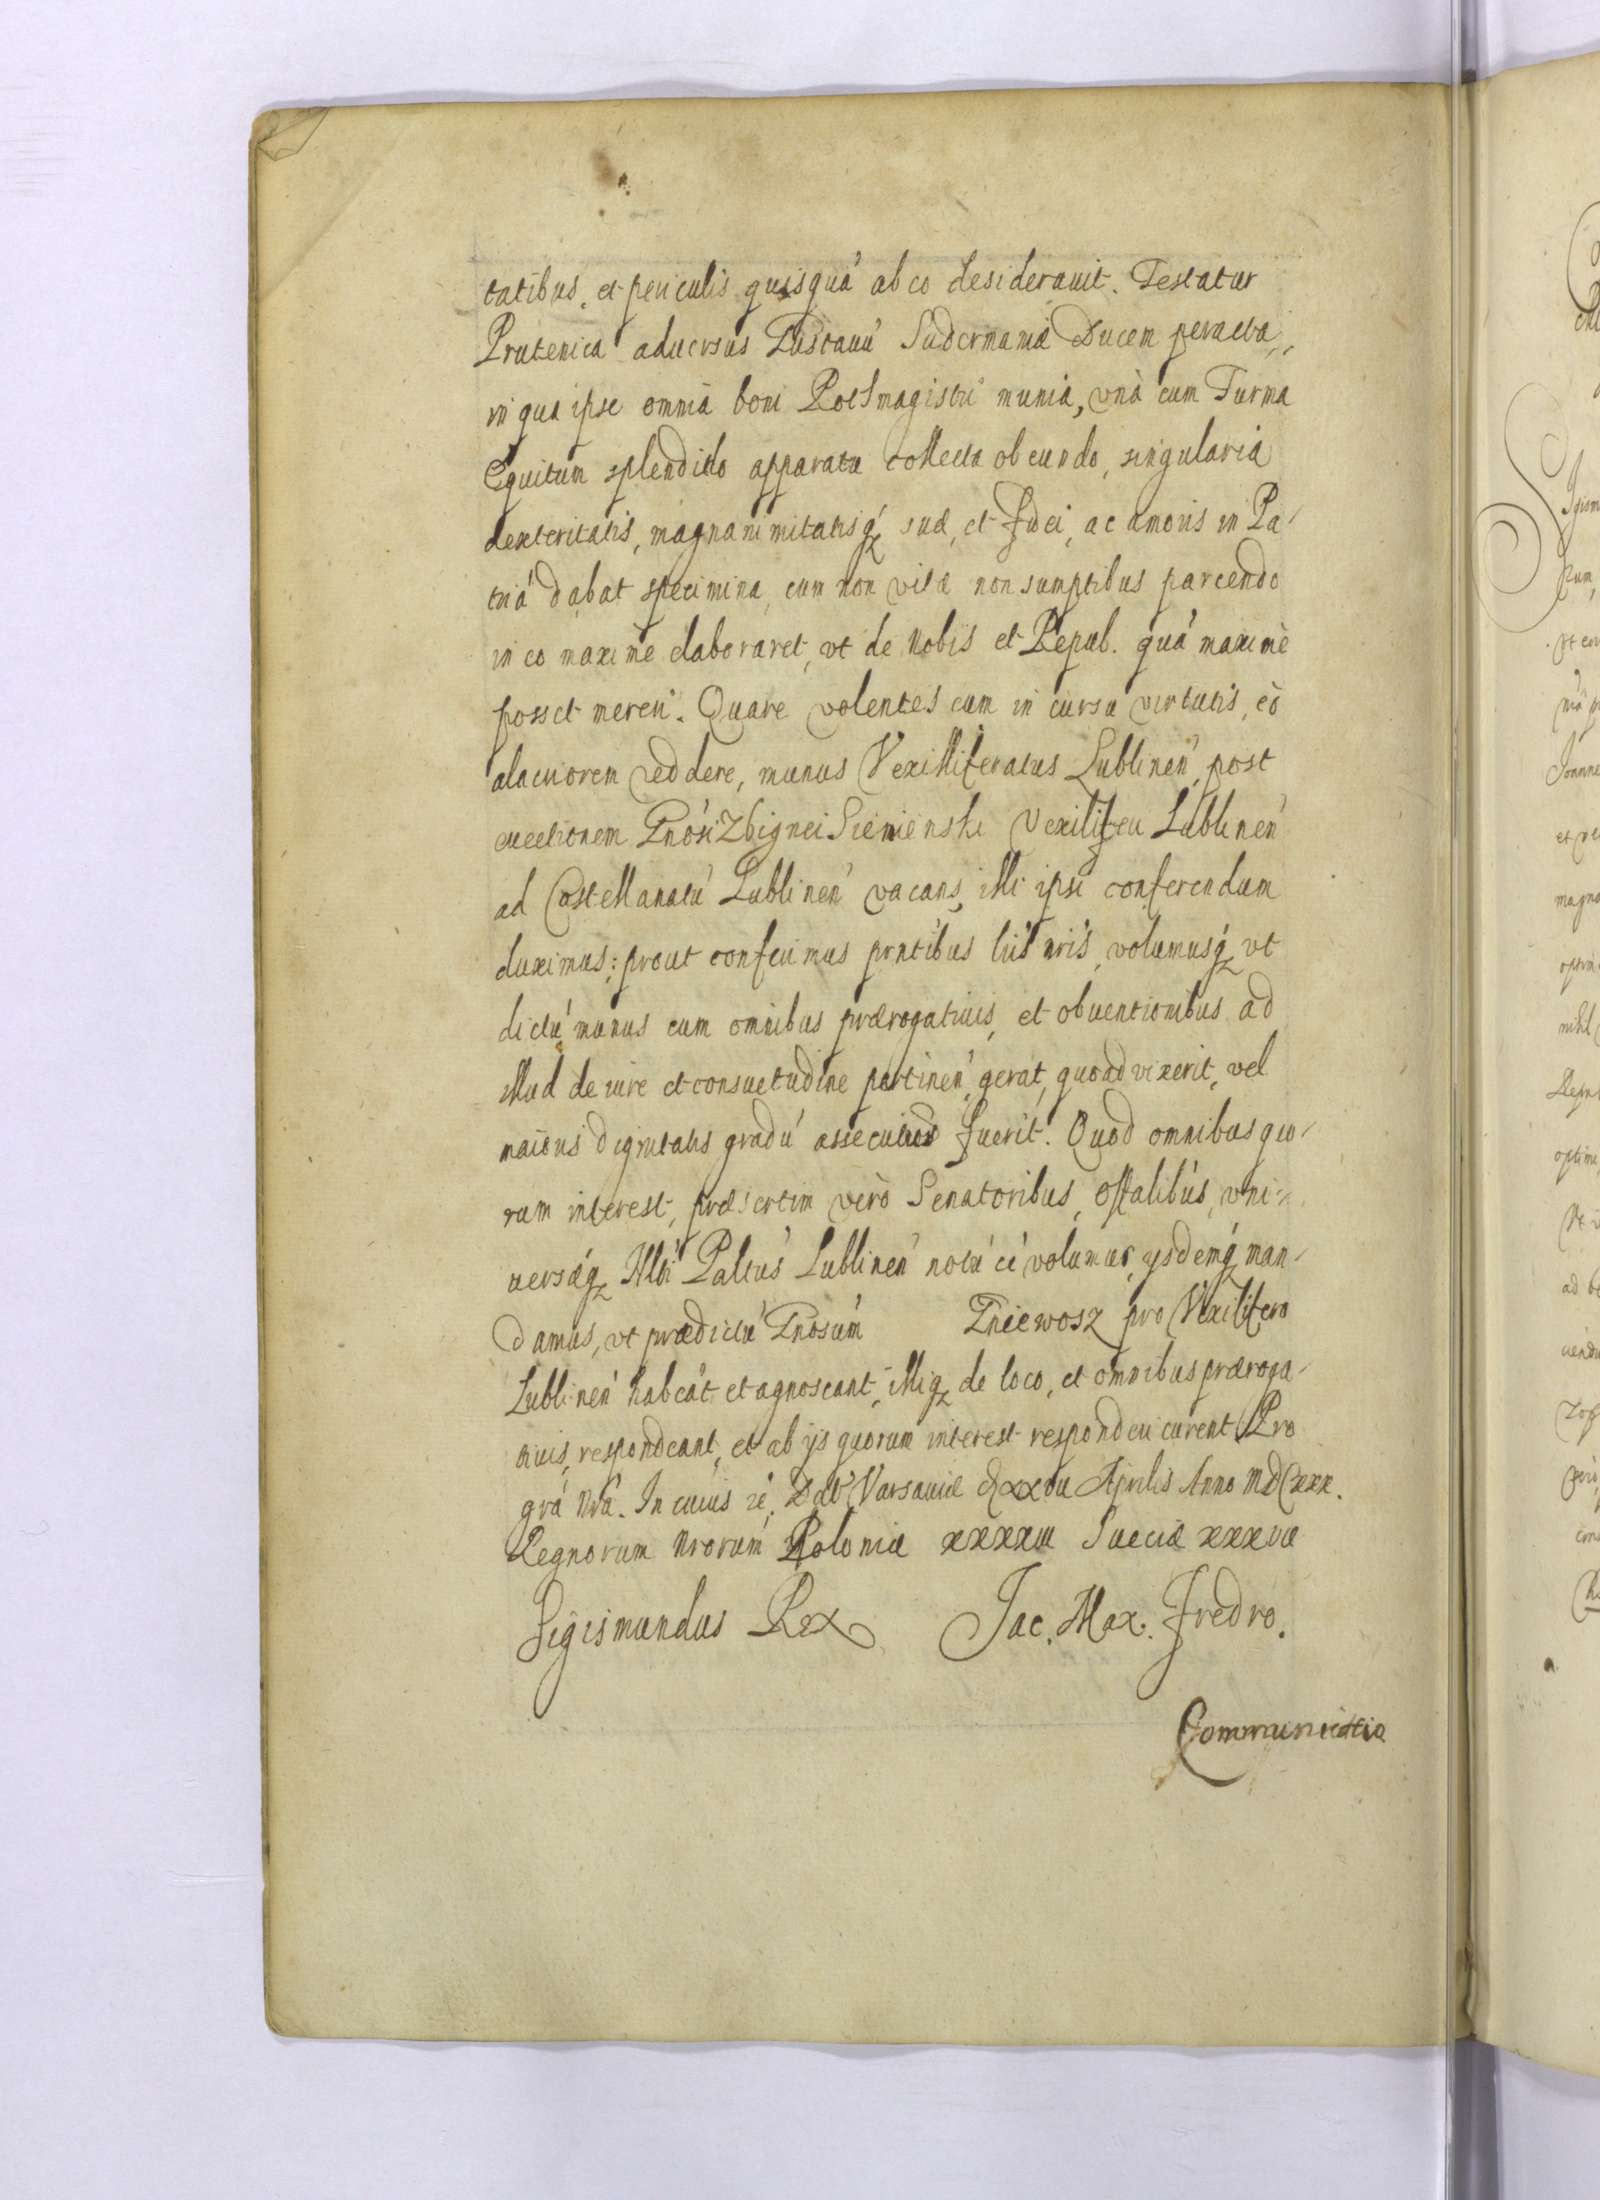 tatibus, et periculis quisquá ab eo desiderauit. Testatur
Prutenica aduersus Gustauú Sudermaniæ Ducem peracta,
in qua ipse omnia boni Rotsmagistri munia, vnà cum Turma
Equitum splendido apparatu collecta obeundo, singularia
dexteritatis, magnanimitatisq́ suæ, et fidei, ac amoris in Pa-
triá dabat specimina, cum non vitæ non sumptibus parcendo
in eo maximè elaboraret, vt de Nobis et Repub. quá maximè
posset mereri. Quare volentes eum in cursu virtutis, eò
alacriorem reddere, munus Vexilliferatus Lublineń, post
euectionem Gnósi Zbignei Sienienski Vexiliferi Lublineń
ad Castellanatú Lublineń vacans, illi ipsi conferendum
duximus; prout conferimus pntibus lris nris, volumusq́ vt
dictú munus cum omnibus prærogatiuis, et obuentionibus ad
illud de iure et consuetudine pertineń, gerat, quoad vixerit, vel
maioris dignitatis gradú assecutus fuerit. Quod omnibus quo-
rum interest, præsertim verò Senatoribus, offalibus, vni-
uersæq́ Nlti Paltús Lublineń notú eé volumus, ysdemq́ man-
damus, vt prædictú Gnosum Gniewosz pro Vexilifero
Lublineń habeát et agnoscant, illiq́ de loco, et omnibus præroga-
tiuis, respondeant, et ab ijs quorum interest responderi curent. Pro
grá Nrá. In cuius rė. Dat Varsauiæ Aprilis Anno MDCXXX.
Regnorum Nrorum Poloniæ xxxxiii Sueciæ xxxvii
Sigismundus Rex Jac. Max. Fredro.
Communicatio